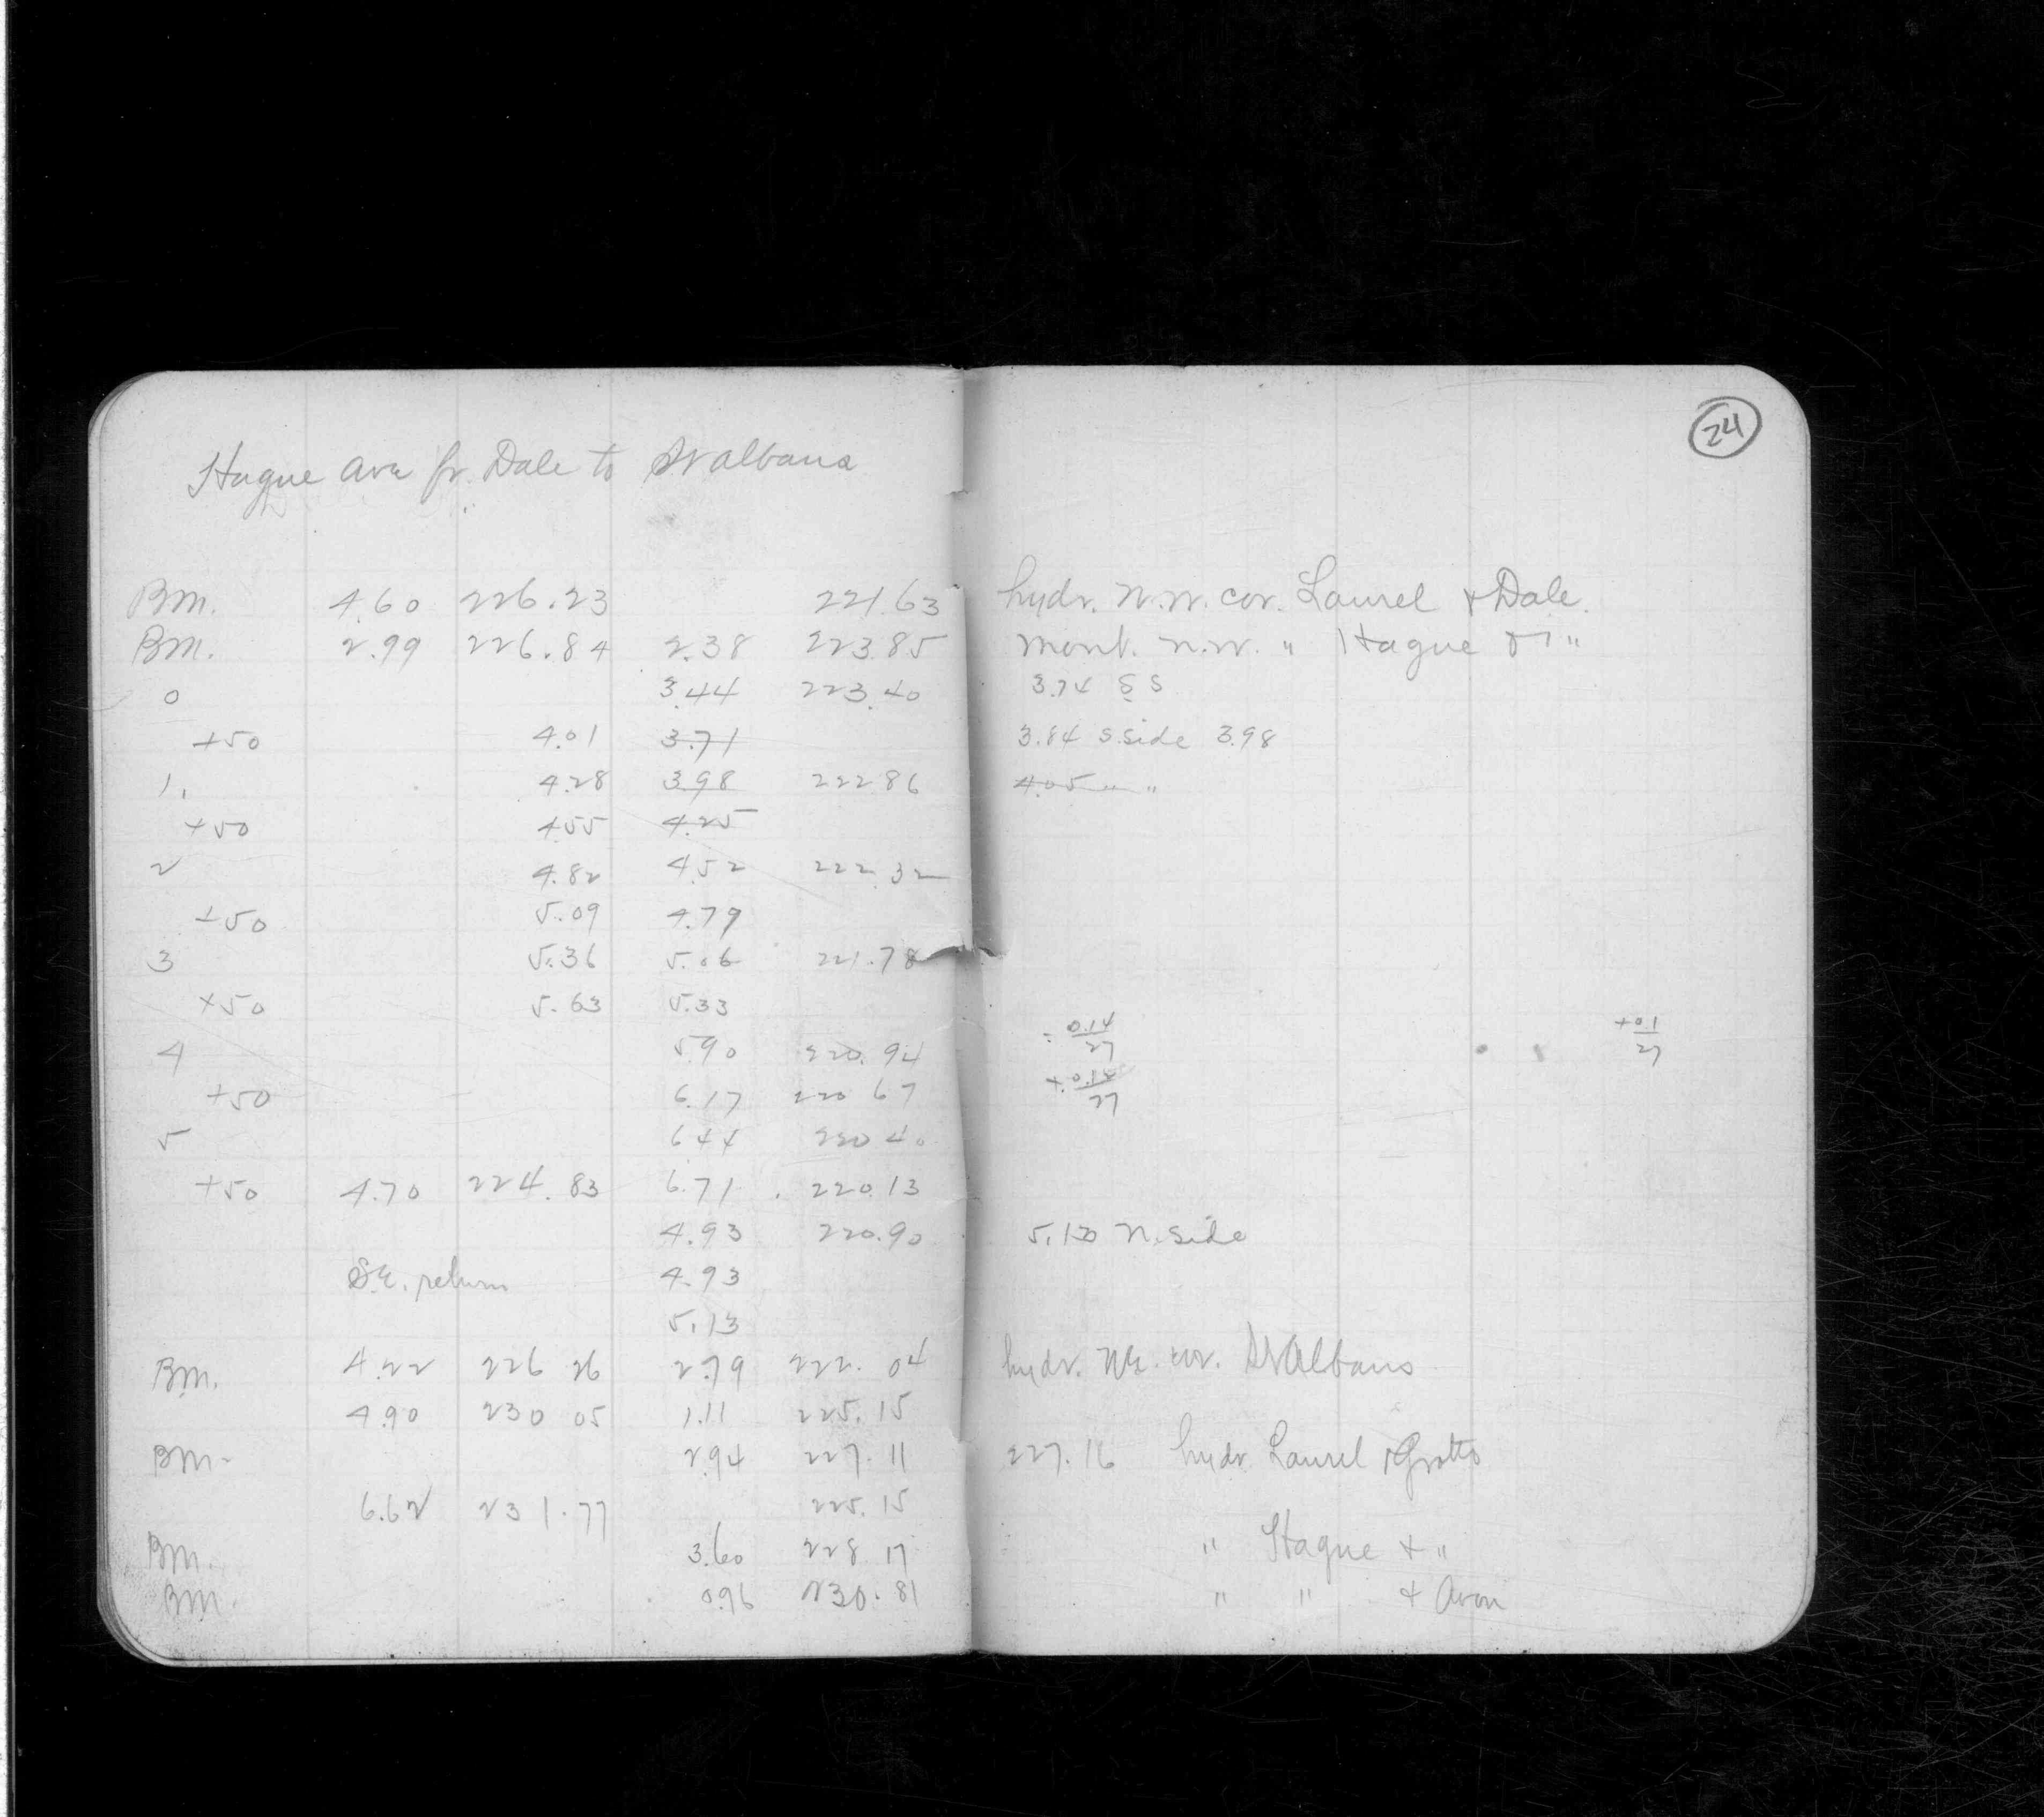 24
Hague Ave fr. Dale to St Albans
BM. 4.60 226.23 221.63 hydr. N.W. cor. Laurel & Dale.
BM. 2.99 226.84 2.38 223.85 Mont. N.W. " Hague & "
0 3.44 223.40 3.74 S S
+50 4.01 3.71 3.84 S. side 3.98
1. 4.28 3.98 222.86 4.05 " "
+50 4.55 4.25
2 4.82 4.52 222.32
+50 5.09 4.79
3 5.36 5.06 221.78
+50 5.63 5.33
4 5.90 220.94 - 0.14/27 +0.1/27
+50 6.17 220 67 + 0.14/27
5 6.44 220 40
+50 4.70 224.83 6.71 220.13
4.93 220.90 5.13 N. side
S.E. return 4.93
5.13
BM. 4.22 226 26 2.79 222.04 hydr. N.E. cor. St Albans
4.90 230 05 1.11 225.15
BM. 2.94 227.11 227.16 hydr Laurel & Grotto
6.62 231.77 225.15
BM. 3.60 228 17 " Hague & "
BM. 0.96 230.81 " " & Avon